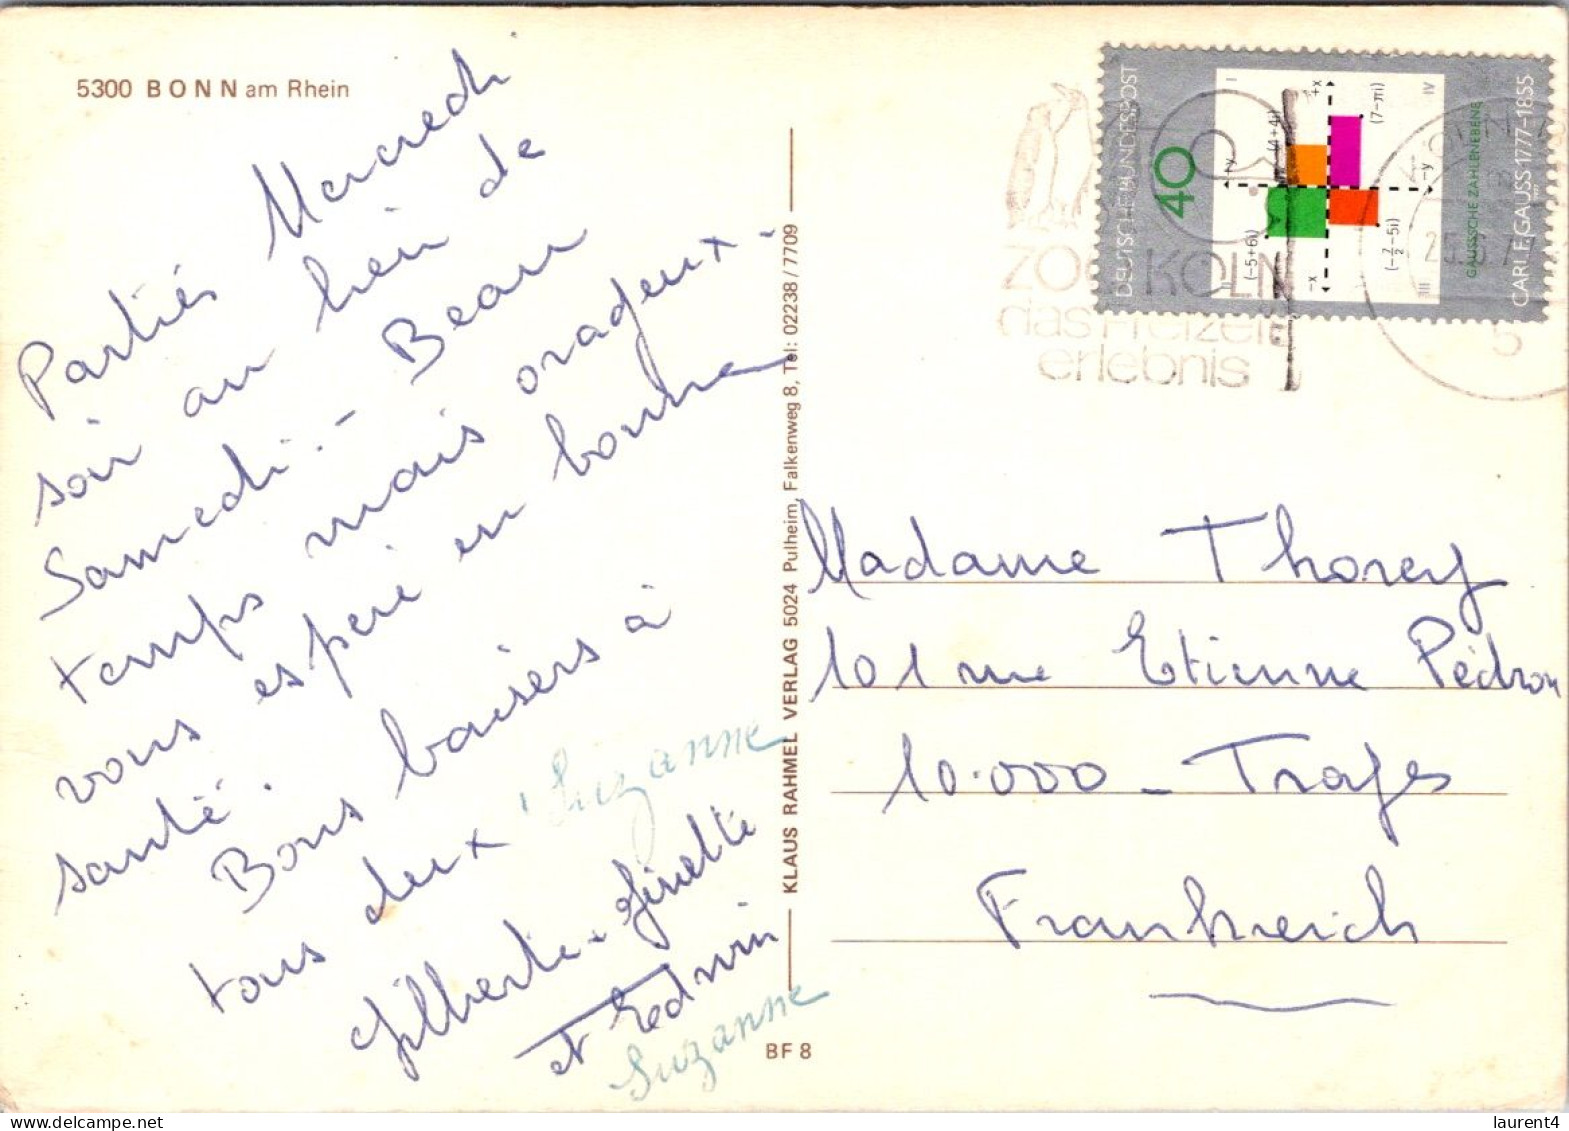 5300 BONN am Rhein
Partiés Mercredi
soir au lieu de
Samedi.- Beau
temps mais orageux.
vous espère en bonne
santé.
Bons baisers à
tous deux
Suzanne
Gilberte - Ginette
et Edwin
Suzanne
KLAUS RAHMEL VERLAG 5024 Pulheim, Falkenweg 8, Tel: 02238/7709
BF 8
ZOO KÖLN
das Freizeit
erlebnis
KÖLN
5
DEUTSCHE BUNDESPOST
40
I
II
III
IV
+x
-x
+y
-y
(4+4i)
(7-πi)
(-5+6i)
(-7/2-5i)
GAUSSSCHE ZAHLENEBENE
CARL F. GAUSS 1777-1855
Madame Thorey
101 rue Etienne Pédron
10.000 - Troyes
Frankreich
laurent4